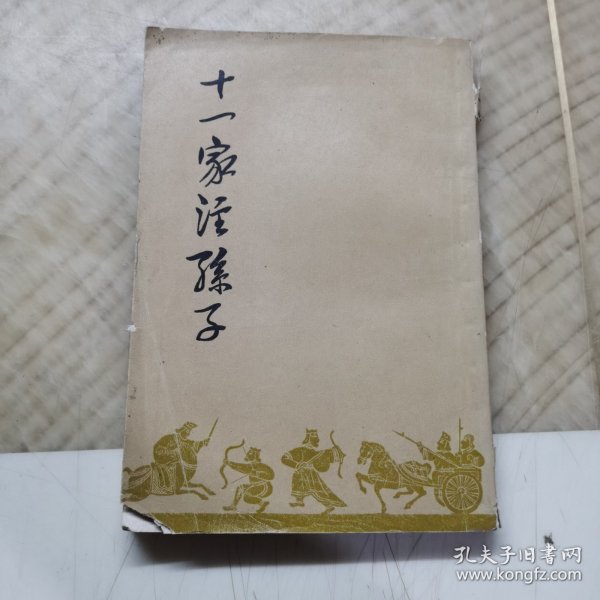 十一家注孫子
孔夫子旧書网
www.kongfz.com